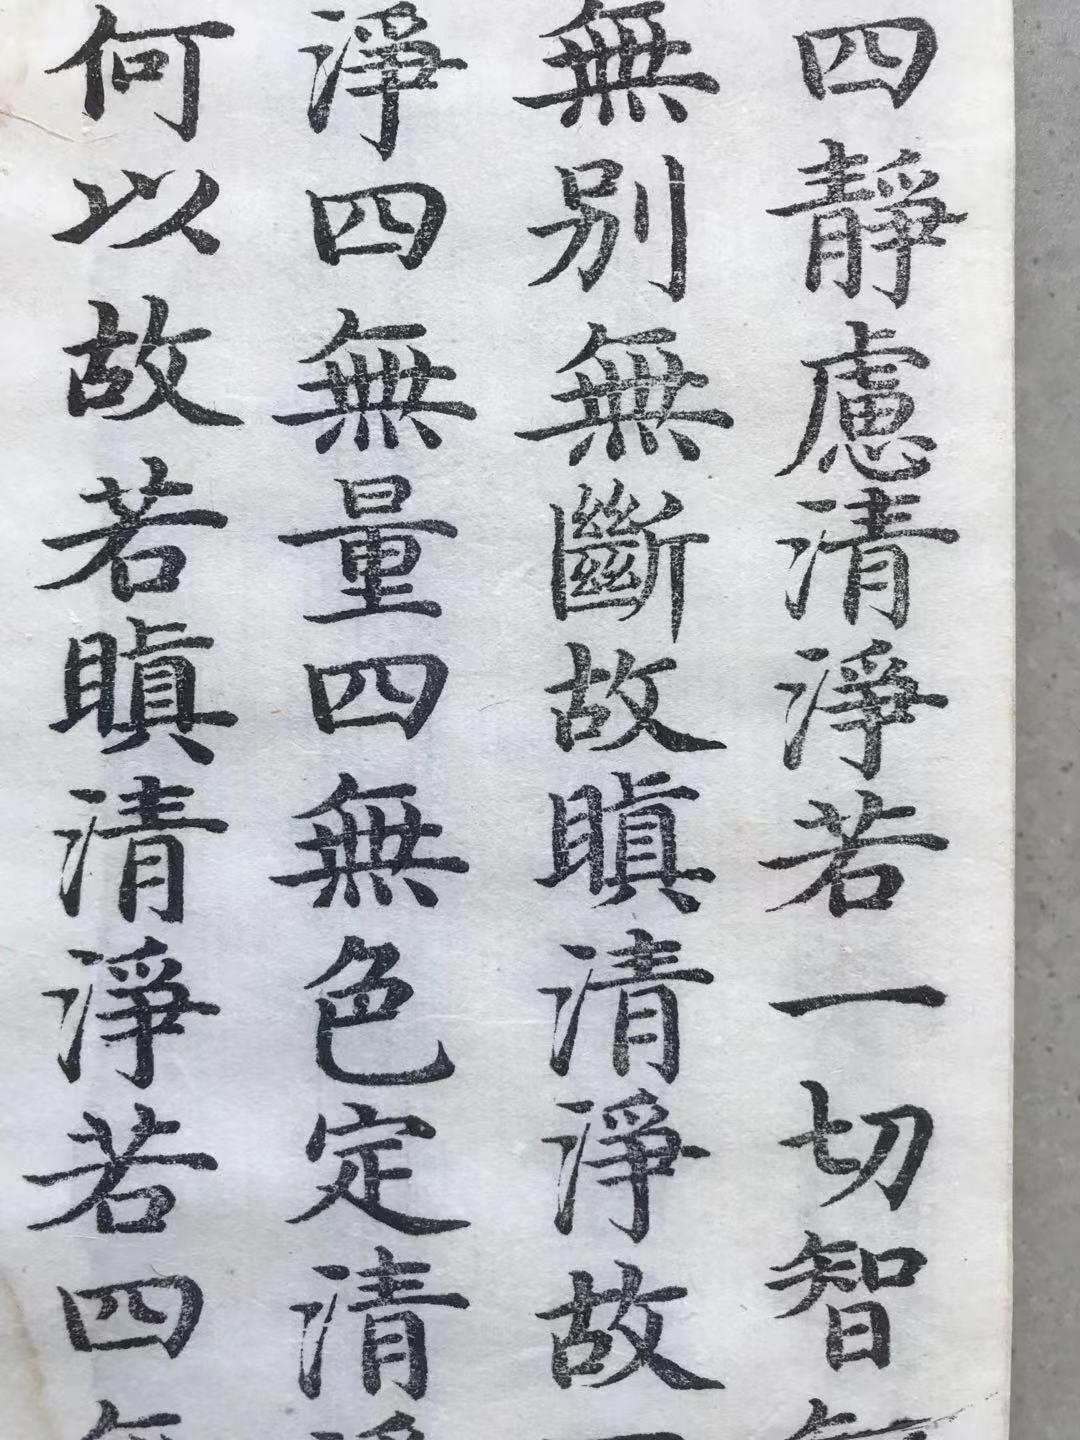 四靜慮清淨若一切智
無別無斷故瞋清淨故
淨四無量四無色定清
何以故若瞋清淨若四